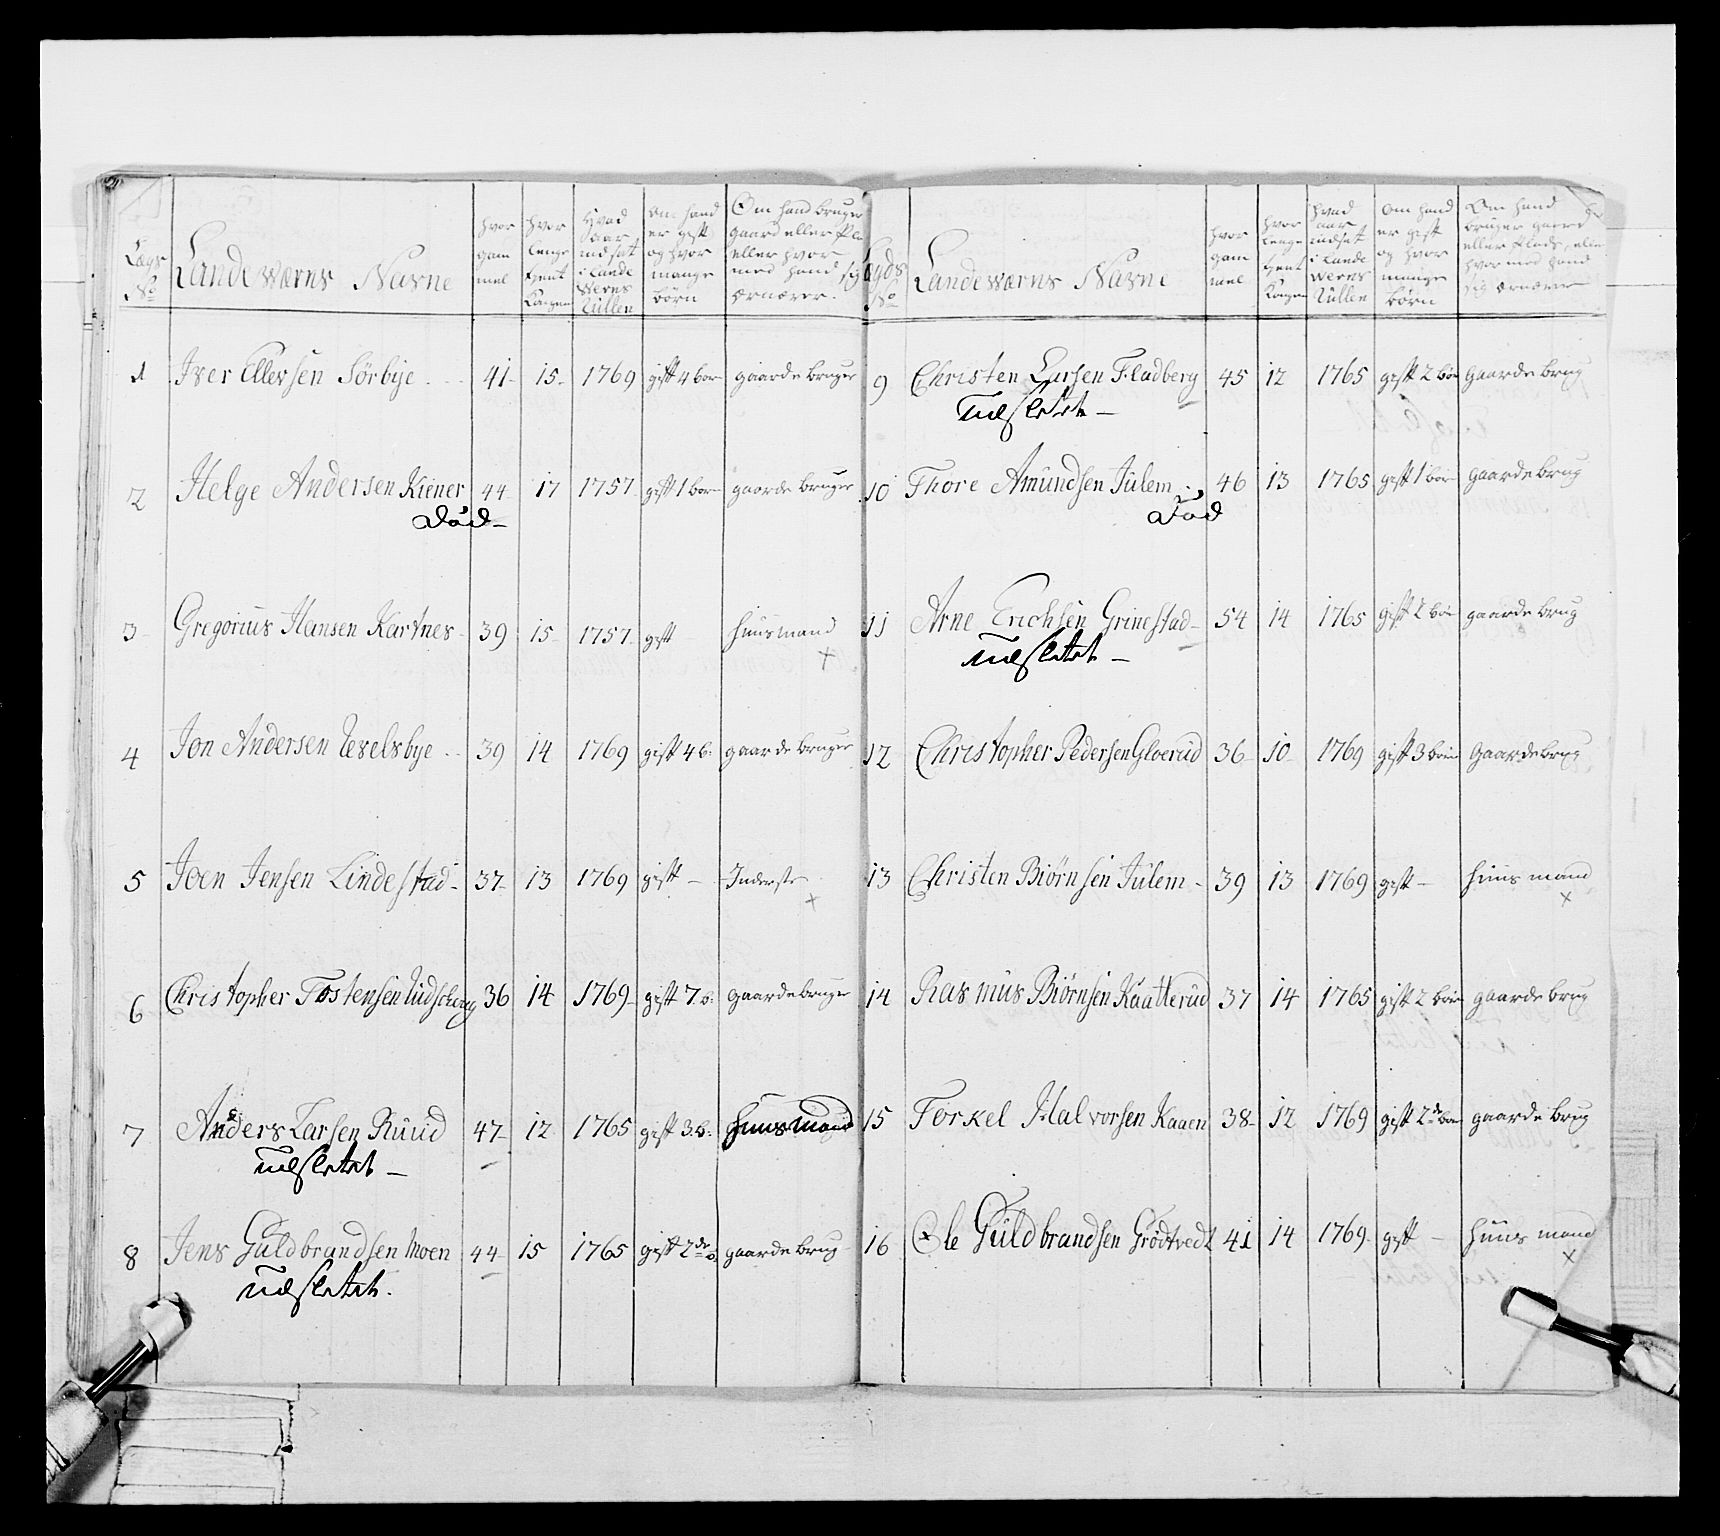 Lægs No
Landeværns Navne
hvor gam mel
hvor lenge tient Kongen
Hvad aar indsat i Lande Værns Rullen
Om hand er gift og hvor mange börn
Om hand bruger gaard eller Pla eller hvor med hand sig ernærer.
1 Iver Ellevsen Sörbye 41 15 1769 gift 4 bor gaarde bruger
2 Helge Andersen Kiener 44 17 1757 gift 1 bor gaarde bruger
Död
3 Gregorius Hansen Kartnes 39 15 1757 gift huusmand
x
4 Jon Andersen 39 14 1769 gift 4 b. gaarde bruger
5 Joen Jensen Lindestad 37 13 1769 gift Inderste
x
6 Christopher Tostensen 36 14 1769 gift 7 b. gaardebruger
7 Anders Larsen Ruud 47 12 1765 gift 3 b. huusmand
udsletet
8 Jens Guldbrandsen Moen 44 15 1765 gift 2de b. gaarde brug
udsletet.
Lægds No
Landeværns Navne
hvor gam mel
hvor lenge tient Kongen
hvad aar indsat i Lande Werns Rullen
Om hand er gift og hvor mange börn
Om hand bruger gaard eller Plads, eller hvor med hand sig ernærer
9 Christen Larsen Fladberg 45 12 1765 gift 2 bör gaarde brug
udsletet
10 Thore Amundsen Julem 46 13 1765 gift 1 bör gaarde brug
Död
11 Arne Erichsen Grinestad 54 14 1765 gift 2 bör gaarde brug
udsletet
12 Christopher Pedersen Gloerud 36 10 1769 gift 3 börn Gaardebrug
13 Christen Biörnsen Julem 39 13 1769 gift huus mand
x
14 Rasmus Biörnsen Kaatterud 37 14 1765 gift 2 bör gaarde brug
15 Torkel Halvorsen Kaaen 38 12 1769 gift 2de bör gaarde brug
16 Ole Guldbrandsen Grödtvedt 41 14 1769 gift huus mand
x